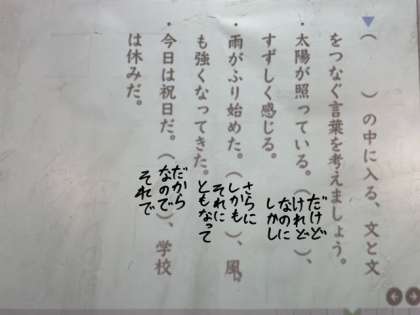 ▼（　　）の中に入る、文と文
をつなぐ言葉を考えましょう。
・太陽が照っている。（　　）、
すずしく感じる。
だけど
けれど
なのに
しかし
・雨がふり始めた。（　　）、風
も強くなってきた。
さらに
しかも
それに
ともなって
・今日は祝日だ。（　　）、学校
は休みだ。
だから
なので
それで